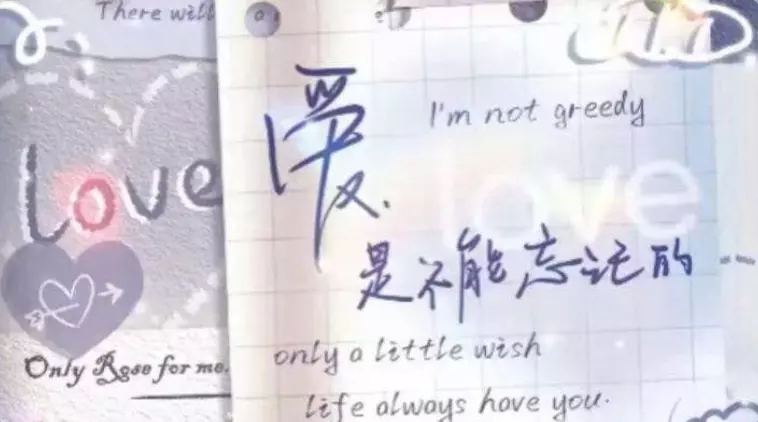 There will
I'm not greedy
Love
love
爱
是不能忘记的
only a little wish
Only Rose for me.
life always have you.